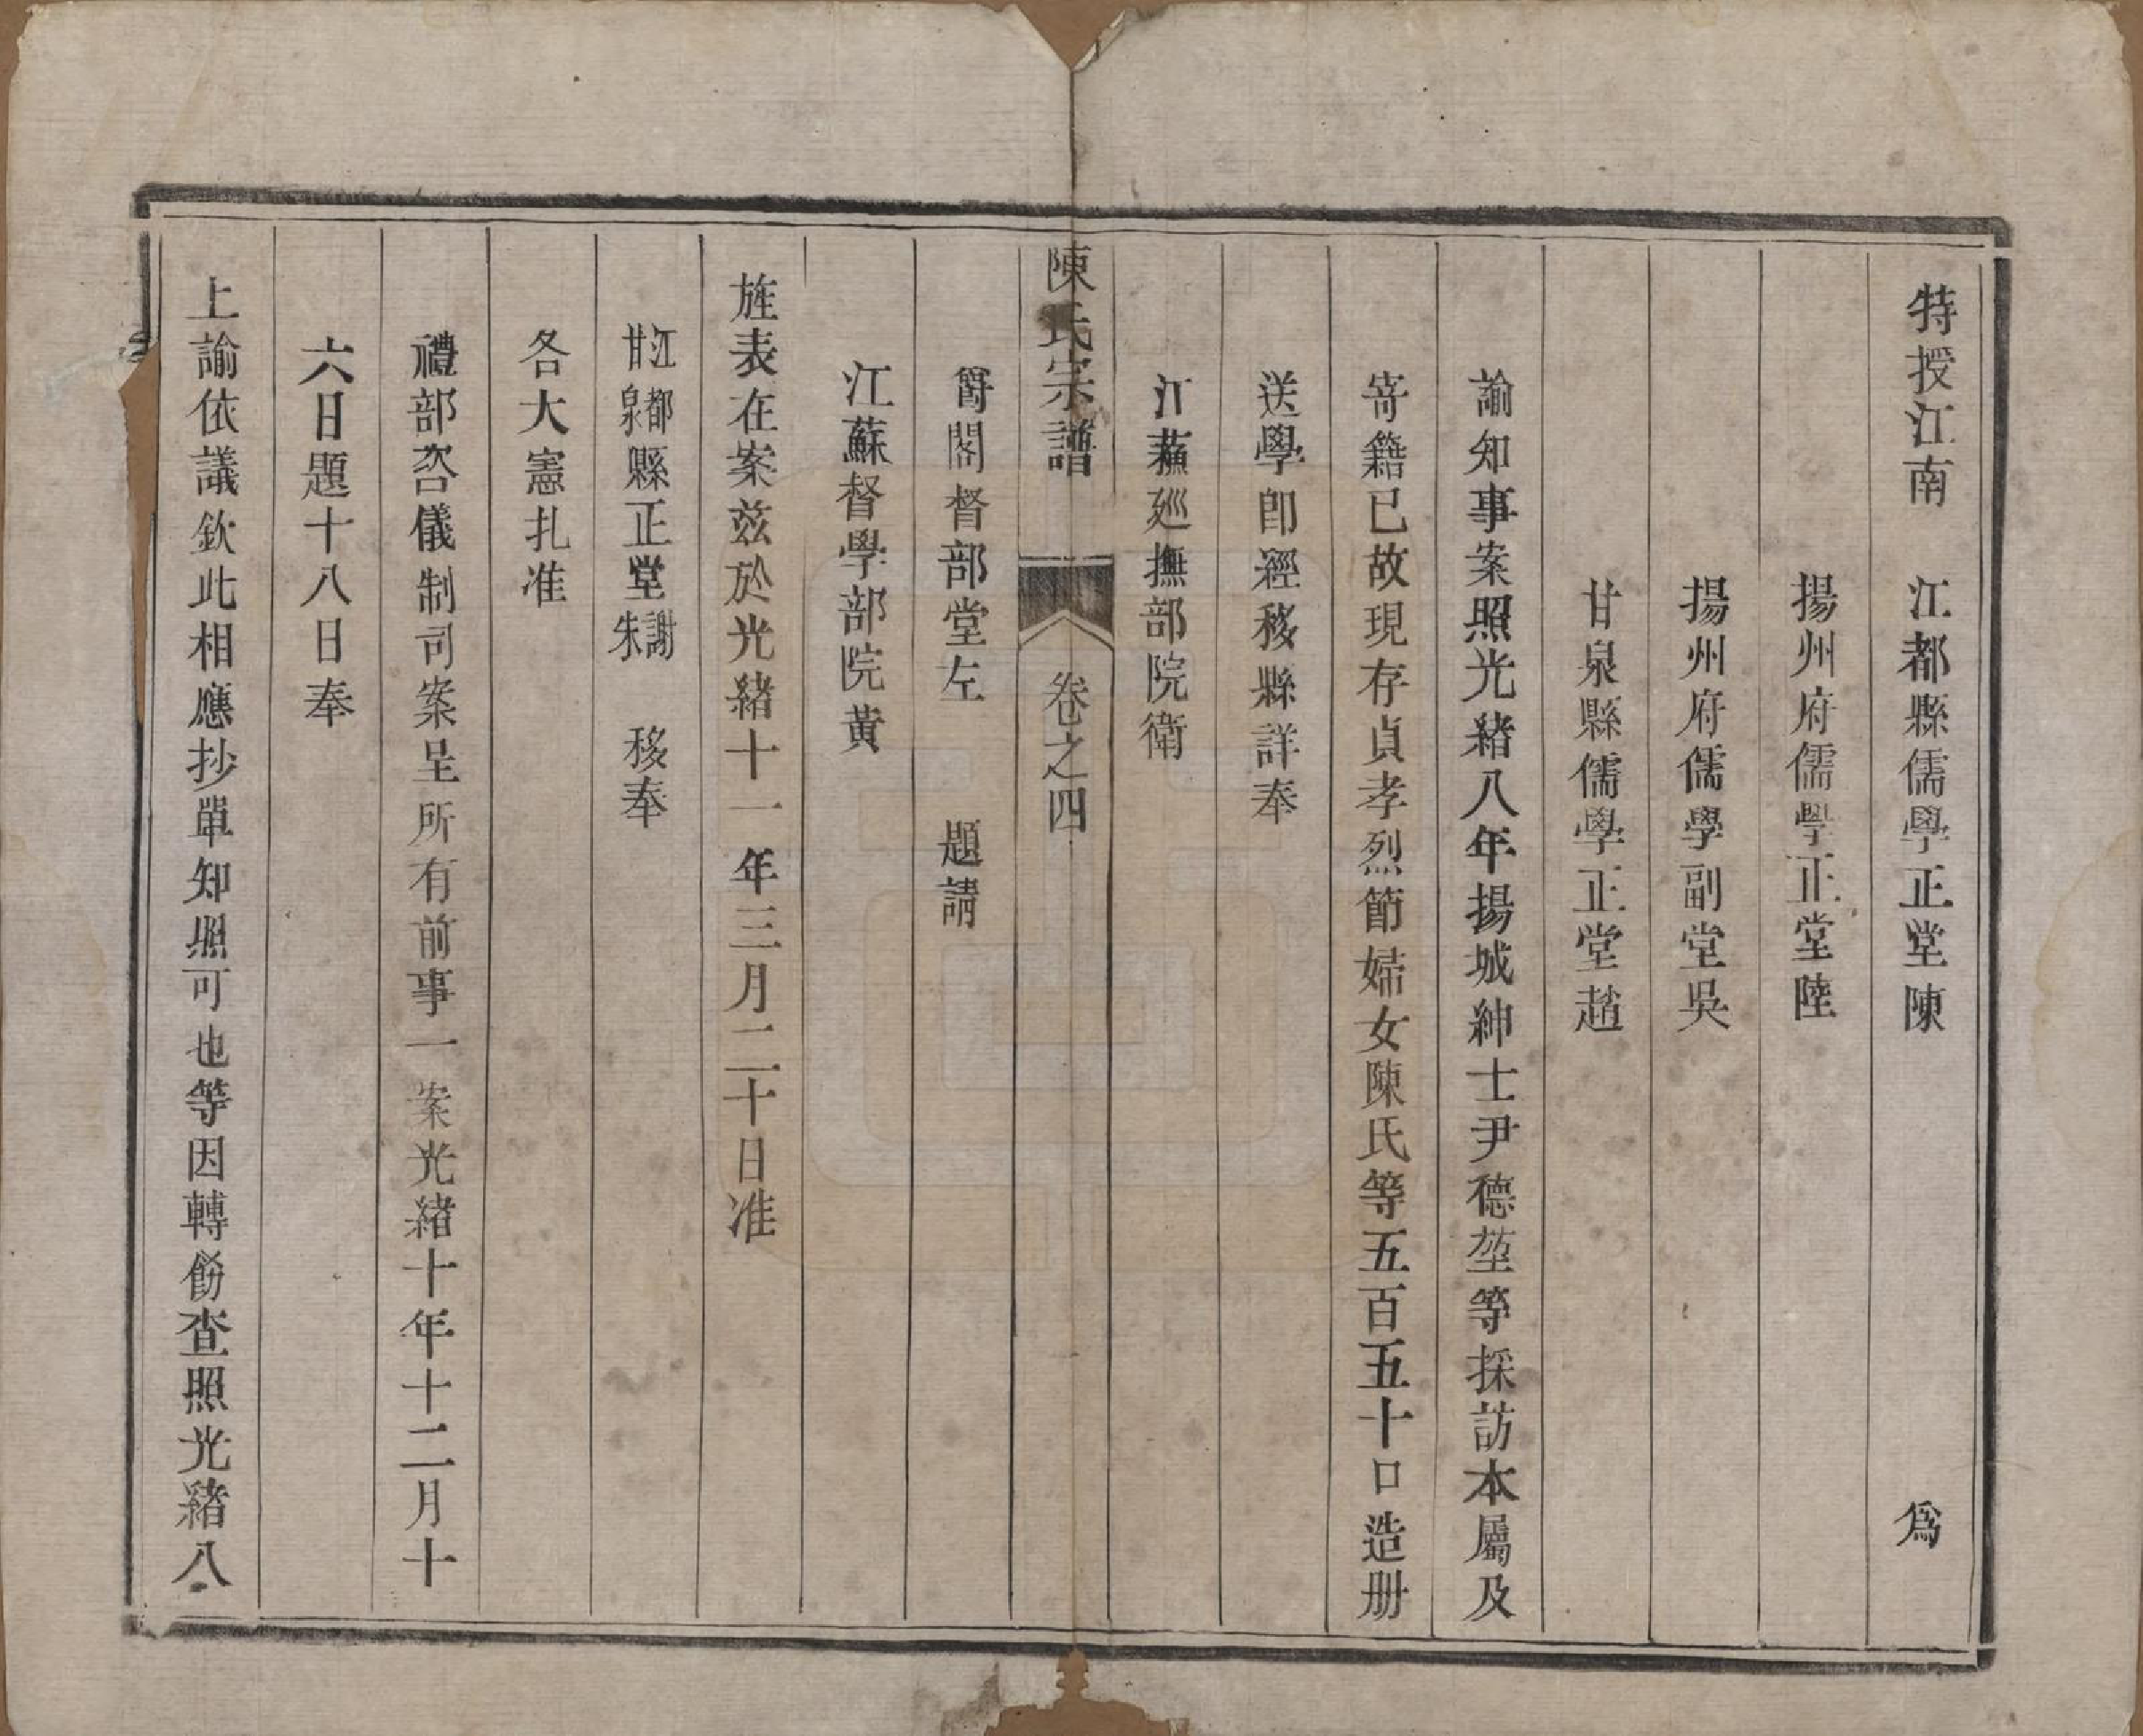 特授江南　江都縣儒學正堂陳　爲
揚州府儒學正堂陸
揚州府儒學副堂吳
甘泉縣儒學正堂趙
諭知事案照光緒八年揚城紳士尹德堃等採訪本屬及
寄籍已故現存貞孝烈節婦女陳氏等五百五十口造册
送學卽經移縣詳奉
江蘇廵撫部院衛
陳氏宗譜　卷之四
爵閣督部堂左　題請
江蘇督學部院黃
旌表在案兹於光緒十一年三月二十日准
江都甘泉縣正堂謝朱　移奉
各大憲扎准
禮部咨儀制司案呈所有前事一案光緒十年十二月十
六日題十八日奉
上諭依議欽此相應抄單知照可也等因轉飭查照光緒八